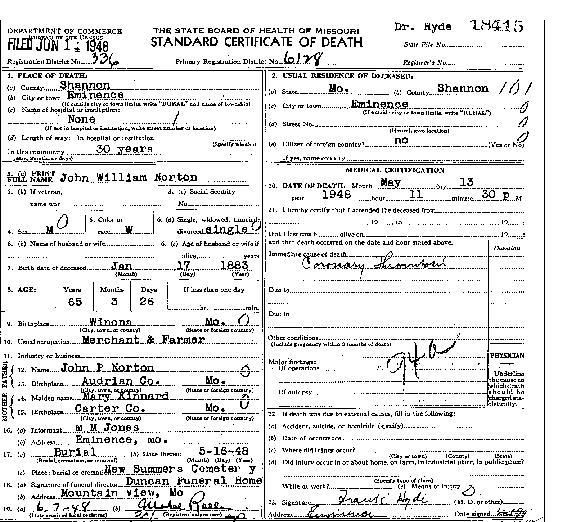 DEPARTMENT OF COMMERCE
THE STATE BOARD OF HEALTH OF MISSOURI
Dr. Hyde 18415
FILED JUN 1 1948
STANDARD CERTIFICATE OF DEATH
State File No.
Registration District No. 336
Primary Registration District No. 6128
Registrar's No.
1. PLACE OF DEATH:
(a) County Shannon
(b) City or town Eminence
(c) Name of hospital or institution:
None
(d) Length of stay: In hospital or institution
In this community 30 years
2. USUAL RESIDENCE OF DECEASED:
(a) State Mo. (b) County Shannon 101
(c) City or town Eminence 0
(d) Street No. 0
(e) Citizen of foreign country? no (Yes or No)
If yes, name country
3. (a) PRINT FULL NAME John William Norton
3. (b) If veteran, name war
3. (c) Social Security No.
4. Sex M 5. Color or race W 6. (a) Single, widowed, married, divorced single
6. (b) Name of husband or wife 6. (c) Age of husband or wife if alive years
7. Birth date of deceased Jan 17 1883
(Month) (Day) (Year)
8. AGE: Years Months Days If less than one day
65 3 26 hr. min.
9. Birthplace Winona Mo.
10. Usual occupation Merchant & Farmer
11. Industry or business
FATHER
12. Name John P Norton
13. Birthplace Audrian Co. Mo.
MOTHER
14. Maiden name Mary Kinnard
15. Birthplace Carter Co. Mo.
16. (a) Informant M M Jones
(b) Address Eminence, mo.
17. (a) Burial (b) Date thereof 5-16-48
(c) Place: burial or cremation New Summers Cemetery
18. (a) Signature of funeral director Duncan Funeral Home
(b) Address Mountain View, Mo
19. (a) 6-7-48 (b)
MEDICAL CERTIFICATION
20. DATE OF DEATH: Month May Day 13
year 1948 hour 11 minute 30 P M
21. I hereby certify that I attended the deceased from
19 to 19
that I last saw h alive on 19
and that death occurred on the date and hour stated above.
Duration
Immediate cause of death
Coronary Thrombosis
Due to
Due to
Other conditions
(Include pregnancy within 3 months of death)
Major findings:
Of operations
94a
Of autopsy
PHYSICIAN
Underline the cause to which death should be charged statistically.
22. If death was due to external causes, fill in the following:
(a) Accident, suicide, or homicide (specify)
(b) Date of occurrence
(c) Where did injury occur?
(City or town) (County) (State)
(d) Did injury occur in or about home, on farm, in industrial place, in public place?
While at work? (e) Means of injury
23. Signature Frank Hyde (M. D. or other)
Address Eminence Date